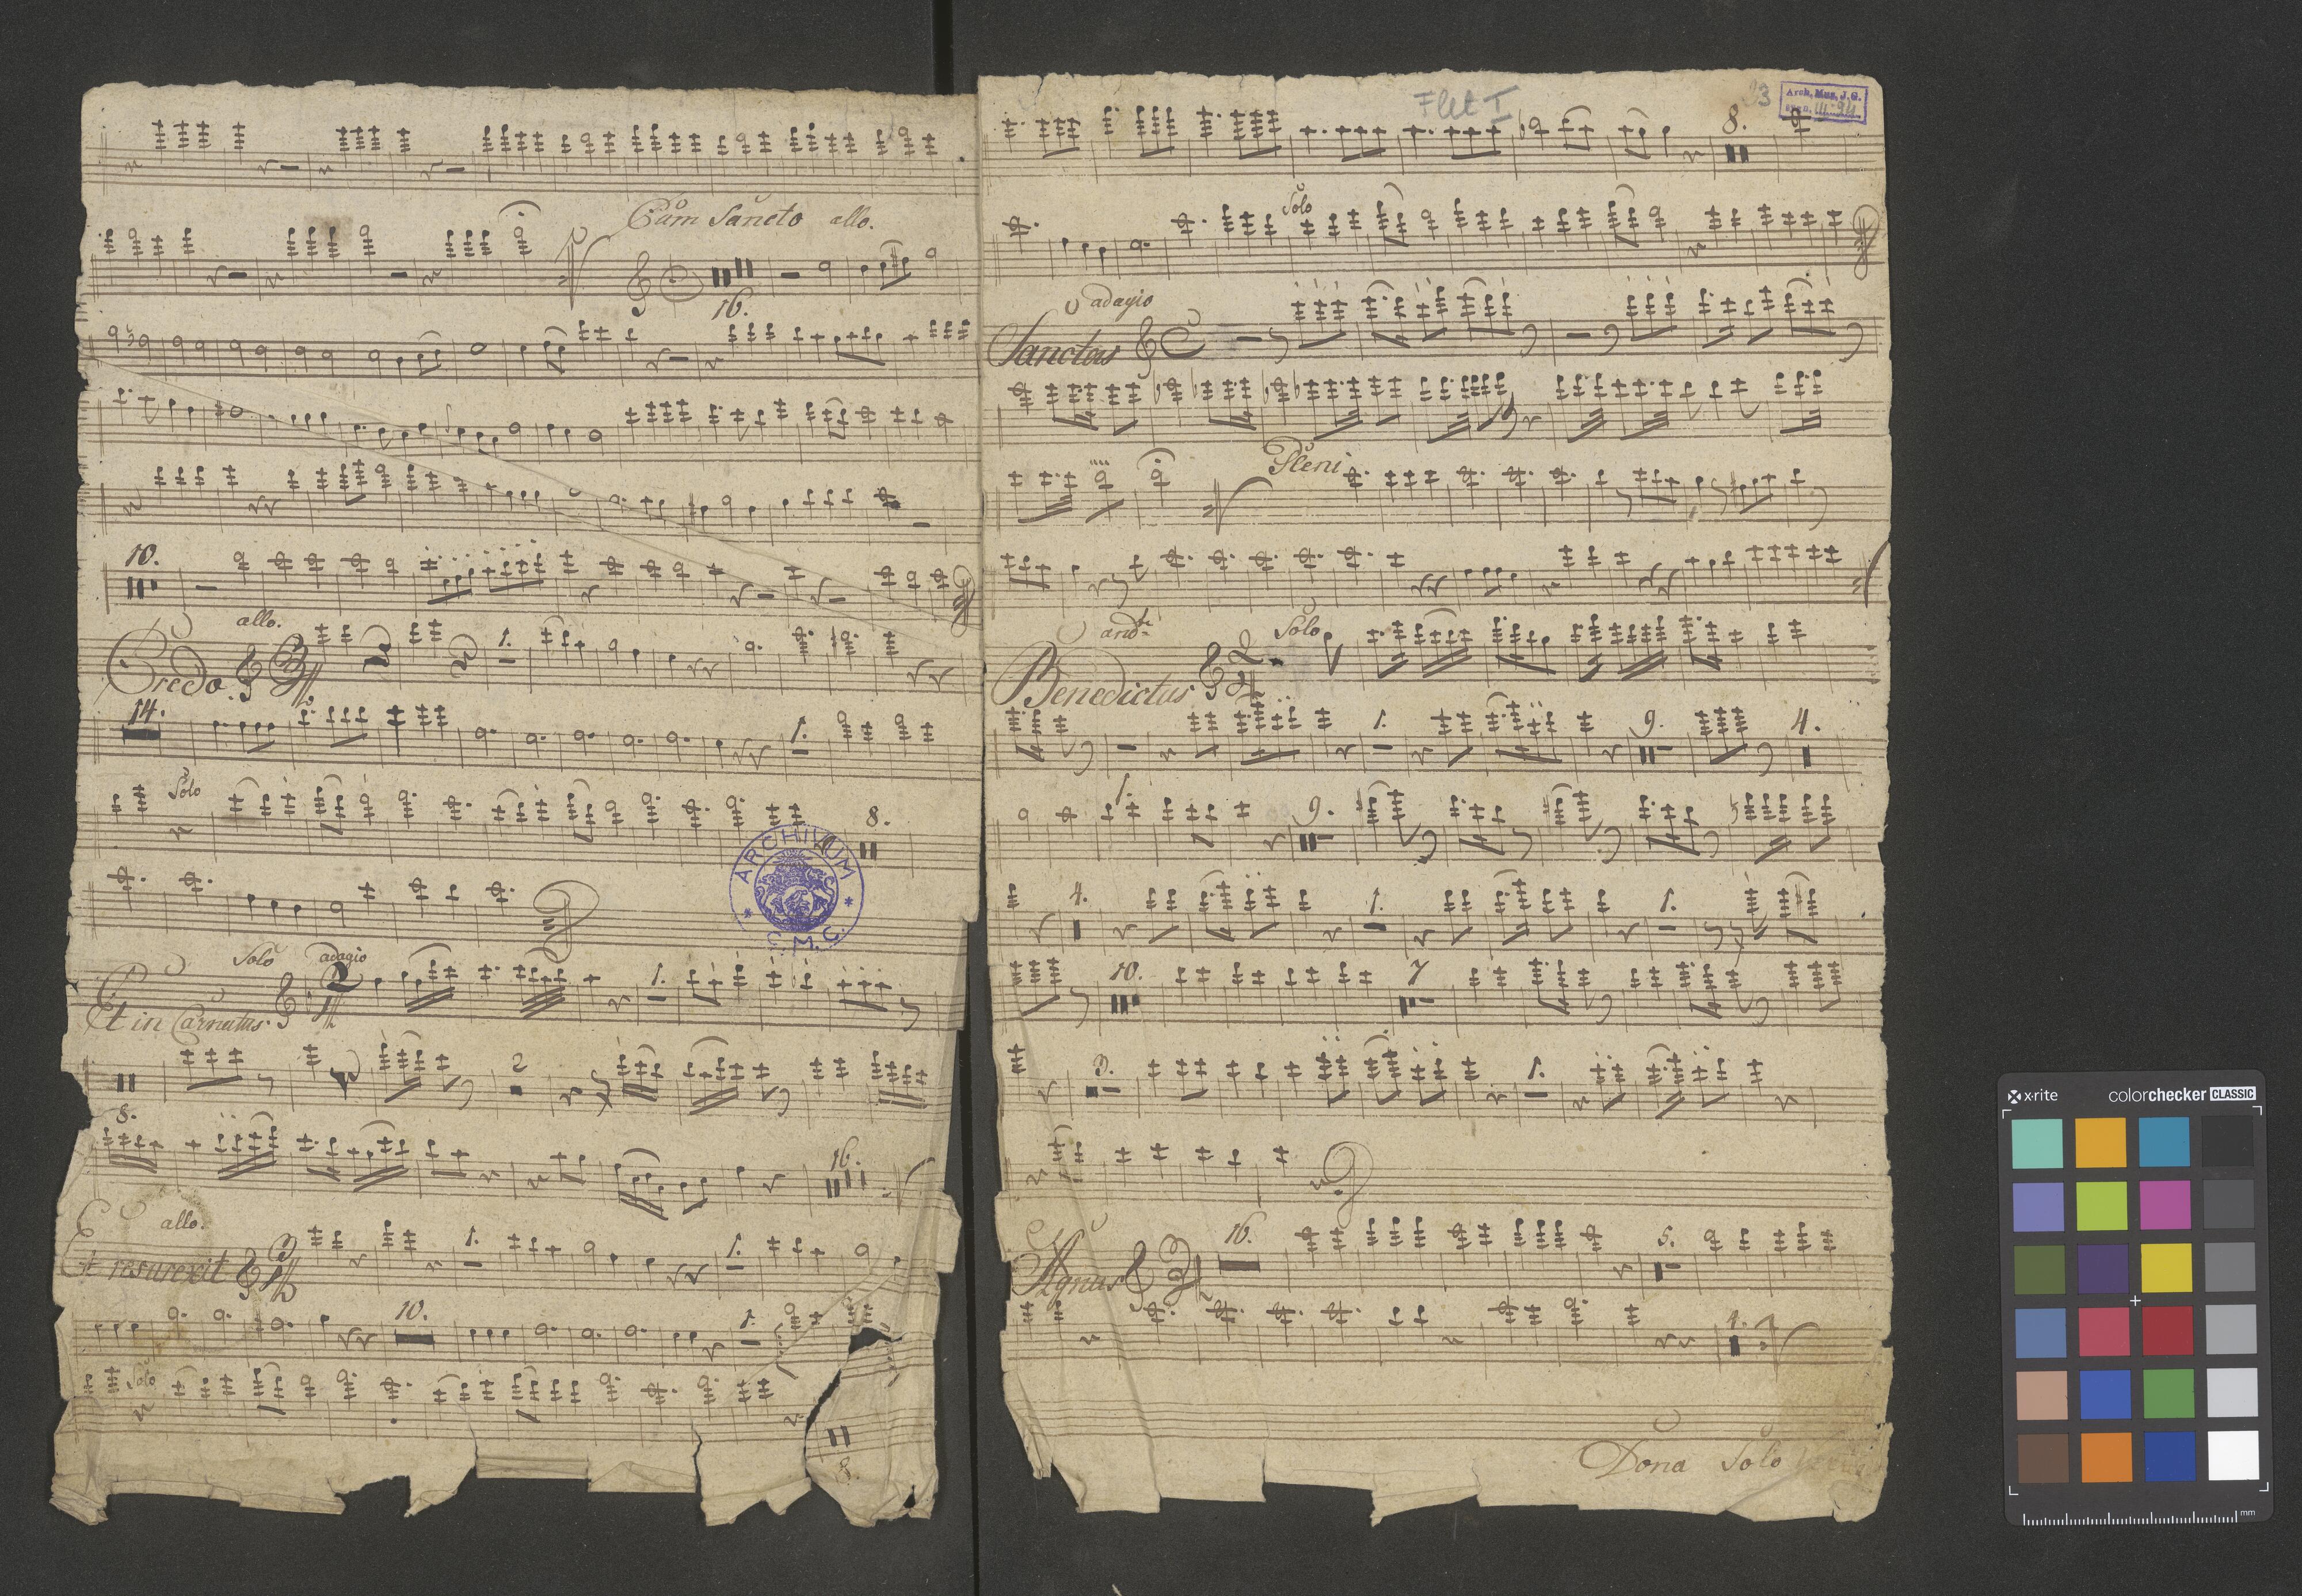 Cum Sancto allo.
16.
10.
allo.
Credo.
1.
14.
1.
Solo
8.
ARCHIVUM
C. M. C.
Solo adagio
Et in Carnatus.
1.
2
8.
16.
allo.
Et resurexit
1.
1.
10.
1.
Solo
8.
Flet I
3
Arch. Mus. J. G.
III-94
8.
Solo
adagio
Sanctus
Pleni
andte
Solo
Benedictus 2 4
1.
9.
4.
1.
9.
4.
1.
1.
10.
7
3.
1.
16.
5.
Agnus 3 4
4.
Dona Solo
x-rite colorchecker CLASSIC
mm